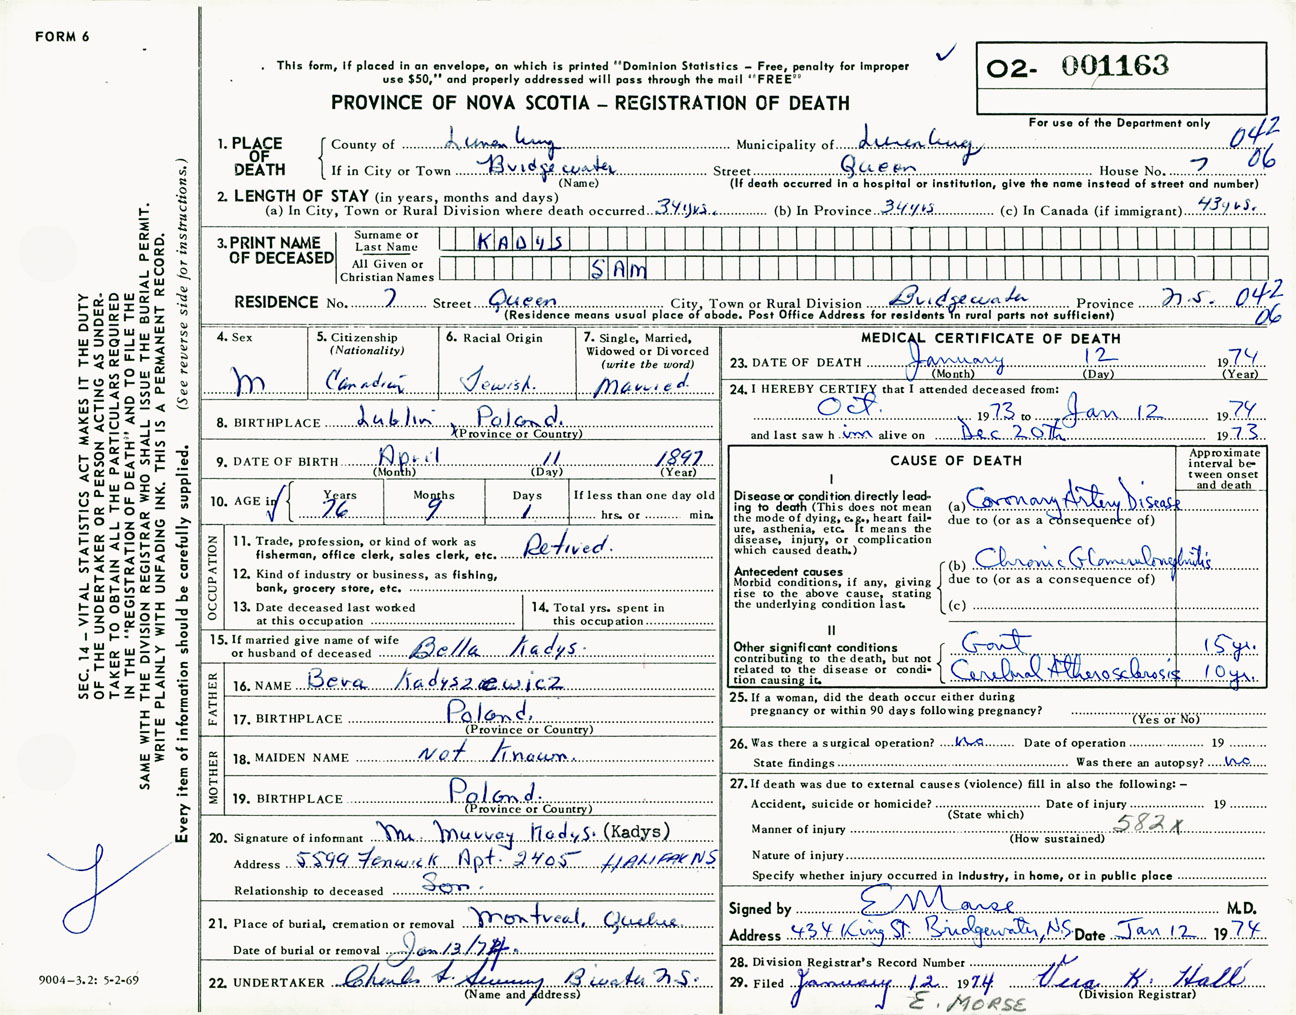 FORM 6
This form, if placed in an envelope, on which is printed "Dominion Statistics – Free, penalty for improper
use $50," and properly addressed will pass through the mail "FREE"
PROVINCE OF NOVA SCOTIA – REGISTRATION OF DEATH
O2- 001163
For use of the Department only
042
06
1. PLACE OF DEATH
County of Lunenburg Municipality of Lunenburg
If in City or Town Bridgewater Street Queen House No. 7
(Name) (If death occurred in a hospital or institution, give the name instead of street and number)
2. LENGTH OF STAY (in years, months and days)
(a) In City, Town or Rural Division where death occurred 34 yrs. (b) In Province 34 yrs (c) In Canada (if immigrant) 43 yrs.
3. PRINT NAME OF DECEASED
Surname or Last Name KADYS
All Given or Christian Names SAM
RESIDENCE No. 7 Street Queen City, Town or Rural Division Bridgewater Province N.S. 042
(Residence means usual place of abode. Post Office Address for residents in rural parts not sufficient) 06
4. Sex
M
5. Citizenship
(Nationality)
Canadian
6. Racial Origin
Jewish.
7. Single, Married,
Widowed or Divorced
(write the word)
Married
8. BIRTHPLACE Lublin, Poland.
(Province or Country)
9. DATE OF BIRTH April 11 1897
(Month) (Day) (Year)
10. AGE in Years Months Days If less than one day old
76 9 1 hrs. or min.
OCCUPATION
11. Trade, profession, or kind of work as
fisherman, office clerk, sales clerk, etc. Retired.
12. Kind of industry or business, as fishing,
bank, grocery store, etc.
13. Date deceased last worked
at this occupation
14. Total yrs. spent in
this occupation
15. If married give name of wife
or husband of deceased Bella Kadys.
FATHER
16. NAME Bera Kadyszewicz
17. BIRTHPLACE Poland.
(Province or Country)
MOTHER
18. MAIDEN NAME Not Known.
19. BIRTHPLACE Poland.
(Province or Country)
20. Signature of informant Mr. Murray Kadys. (Kadys)
Address 5599 Fenwick Apt. 2405 HALIFAX NS
Relationship to deceased Son.
21. Place of burial, cremation or removal Montreal, Quebec
Date of burial or removal Jan 13/74.
22. UNDERTAKER Charles L. B'water N.S.
(Name and address)
MEDICAL CERTIFICATE OF DEATH
23. DATE OF DEATH January 12 1974
(Month) (Day) (Year)
24. I HEREBY CERTIFY that I attended deceased from:
Oct. 1973 to Jan 12 1974
and last saw him alive on Dec 20th 1973
CAUSE OF DEATH
Approximate
interval be-
tween onset
and death
I
Disease or condition directly lead-
ing to death (This does not mean
the mode of dying, e.g., heart fail-
ure, asthenia, etc. It means the
disease, injury, or complication
which caused death.)
(a) Coronary Artery Disease
due to (or as a consequence of)
Antecedent causes
Morbid conditions, if any, giving
rise to the above cause, stating
the underlying condition last.
(b) Chronic Glomerulonephritis
due to (or as a consequence of)
(c)
II
Other significant conditions
contributing to the death, but not
related to the disease or condi-
tion causing it.
Gout 15 yr.
Cerebral Atherosclerosis 10 yr.
25. If a woman, did the death occur either during
pregnancy or within 90 days following pregnancy?
(Yes or No)
26. Was there a surgical operation? no Date of operation 19
State findings Was there an autopsy? no
27. If death was due to external causes (violence) fill in also the following: –
Accident, suicide or homicide? Date of injury 19
(State which)
Manner of injury 582x
(How sustained)
Nature of injury
Specify whether injury occurred in industry, in home, or in public place
Signed by E Morse M.D.
Address 434 King St. Bridgewater, N.S. Date Jan 12 1974
28. Division Registrar's Record Number
29. Filed January 12 1974 Vera K. Hall
(Division Registrar)
E. MORSE
SEC. 14 – VITAL STATISTICS ACT MAKES IT THE DUTY
OF THE UNDERTAKER OR PERSON ACTING AS UNDER-
TAKER TO OBTAIN ALL THE PARTICULARS REQUIRED
IN THE "REGISTRATION OF DEATH" AND TO FILE THE
SAME WITH THE DIVISION REGISTRAR WHO SHALL ISSUE THE BURIAL PERMIT.
WRITE PLAINLY WITH UNFADING INK. THIS IS A PERMANENT RECORD.
Every item of information should be carefully supplied. (See reverse side for instructions.)
9004–3.2: 5-2-69